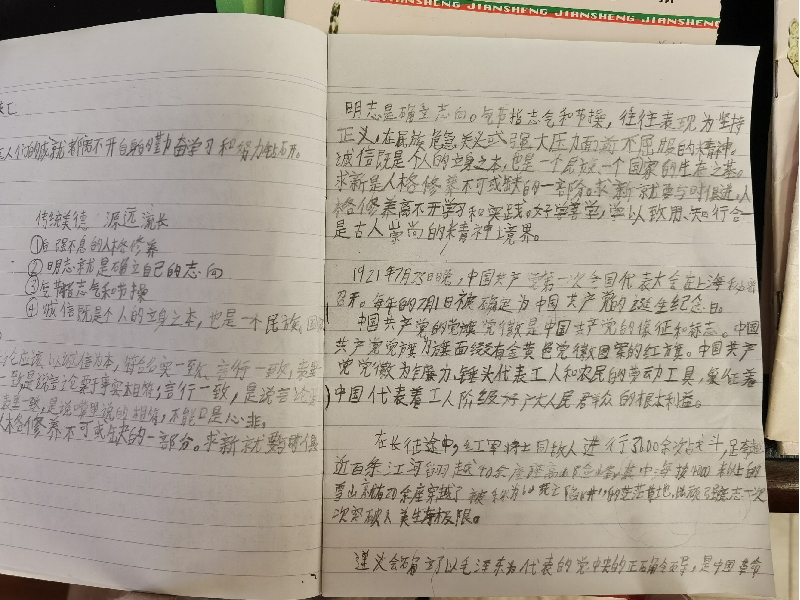 JIANSHENG JIANSHENG JIANSHENG JIANSHENG
人代的成就都离不开自身的勤奋学习和努力钻研。
传统美德 源远流长
①自强不息的人格修养
②明志就是确立自己的志向
③气节指志气和节操
④诚信既是个人的立身之本，也是一个民族、国
言论应该以诚信为本，符合实一致，言行一致，表里
一致是说言论要于事实相符；言行一致，是说言论
表里一致，是说嘴里说的相符，不能口是心非。
人格修养不可或缺的一部分。求新就要与时俱
明志是确立志向。气节指志气和节操，往往表现为坚持
正义，在民族危急关头或强大压力面前不屈服的精神。
诚信既是个人的立身之本，也是一个民族、一个国家的生存之基。
求新是人格修养不可或缺的一部分。求新就要与时俱进，人
格修养离不开学习和实践。好学善学，学以致用、知行合一
是古人崇尚的精神境界。
1921年7月23日晚，中国共产党第一次全国代表大会在上海
召开。每年的7月1日被确定为中国共产党的诞生纪念日。
中国共产党的党旗党徽是中国共产党的象征和标志。中国
共产党党旗为旗面缀有金黄色党徽图案的红旗。中国共产
党党徽为镰刀、锤头代表工人和农民的劳动工具，象征着
中国代表着工人阶级和广大人民群众的根本利益。
在长征途中，红军将士同敌人进行了600余次战斗，
近百条江河翻越40余座
雪山 20余座穿越了被称为"死亡陷阱"的茫茫草地，一次
次突破人类生存极限。
遵义会确立了以毛泽东为代表的党中央的正确领导，是中国革命